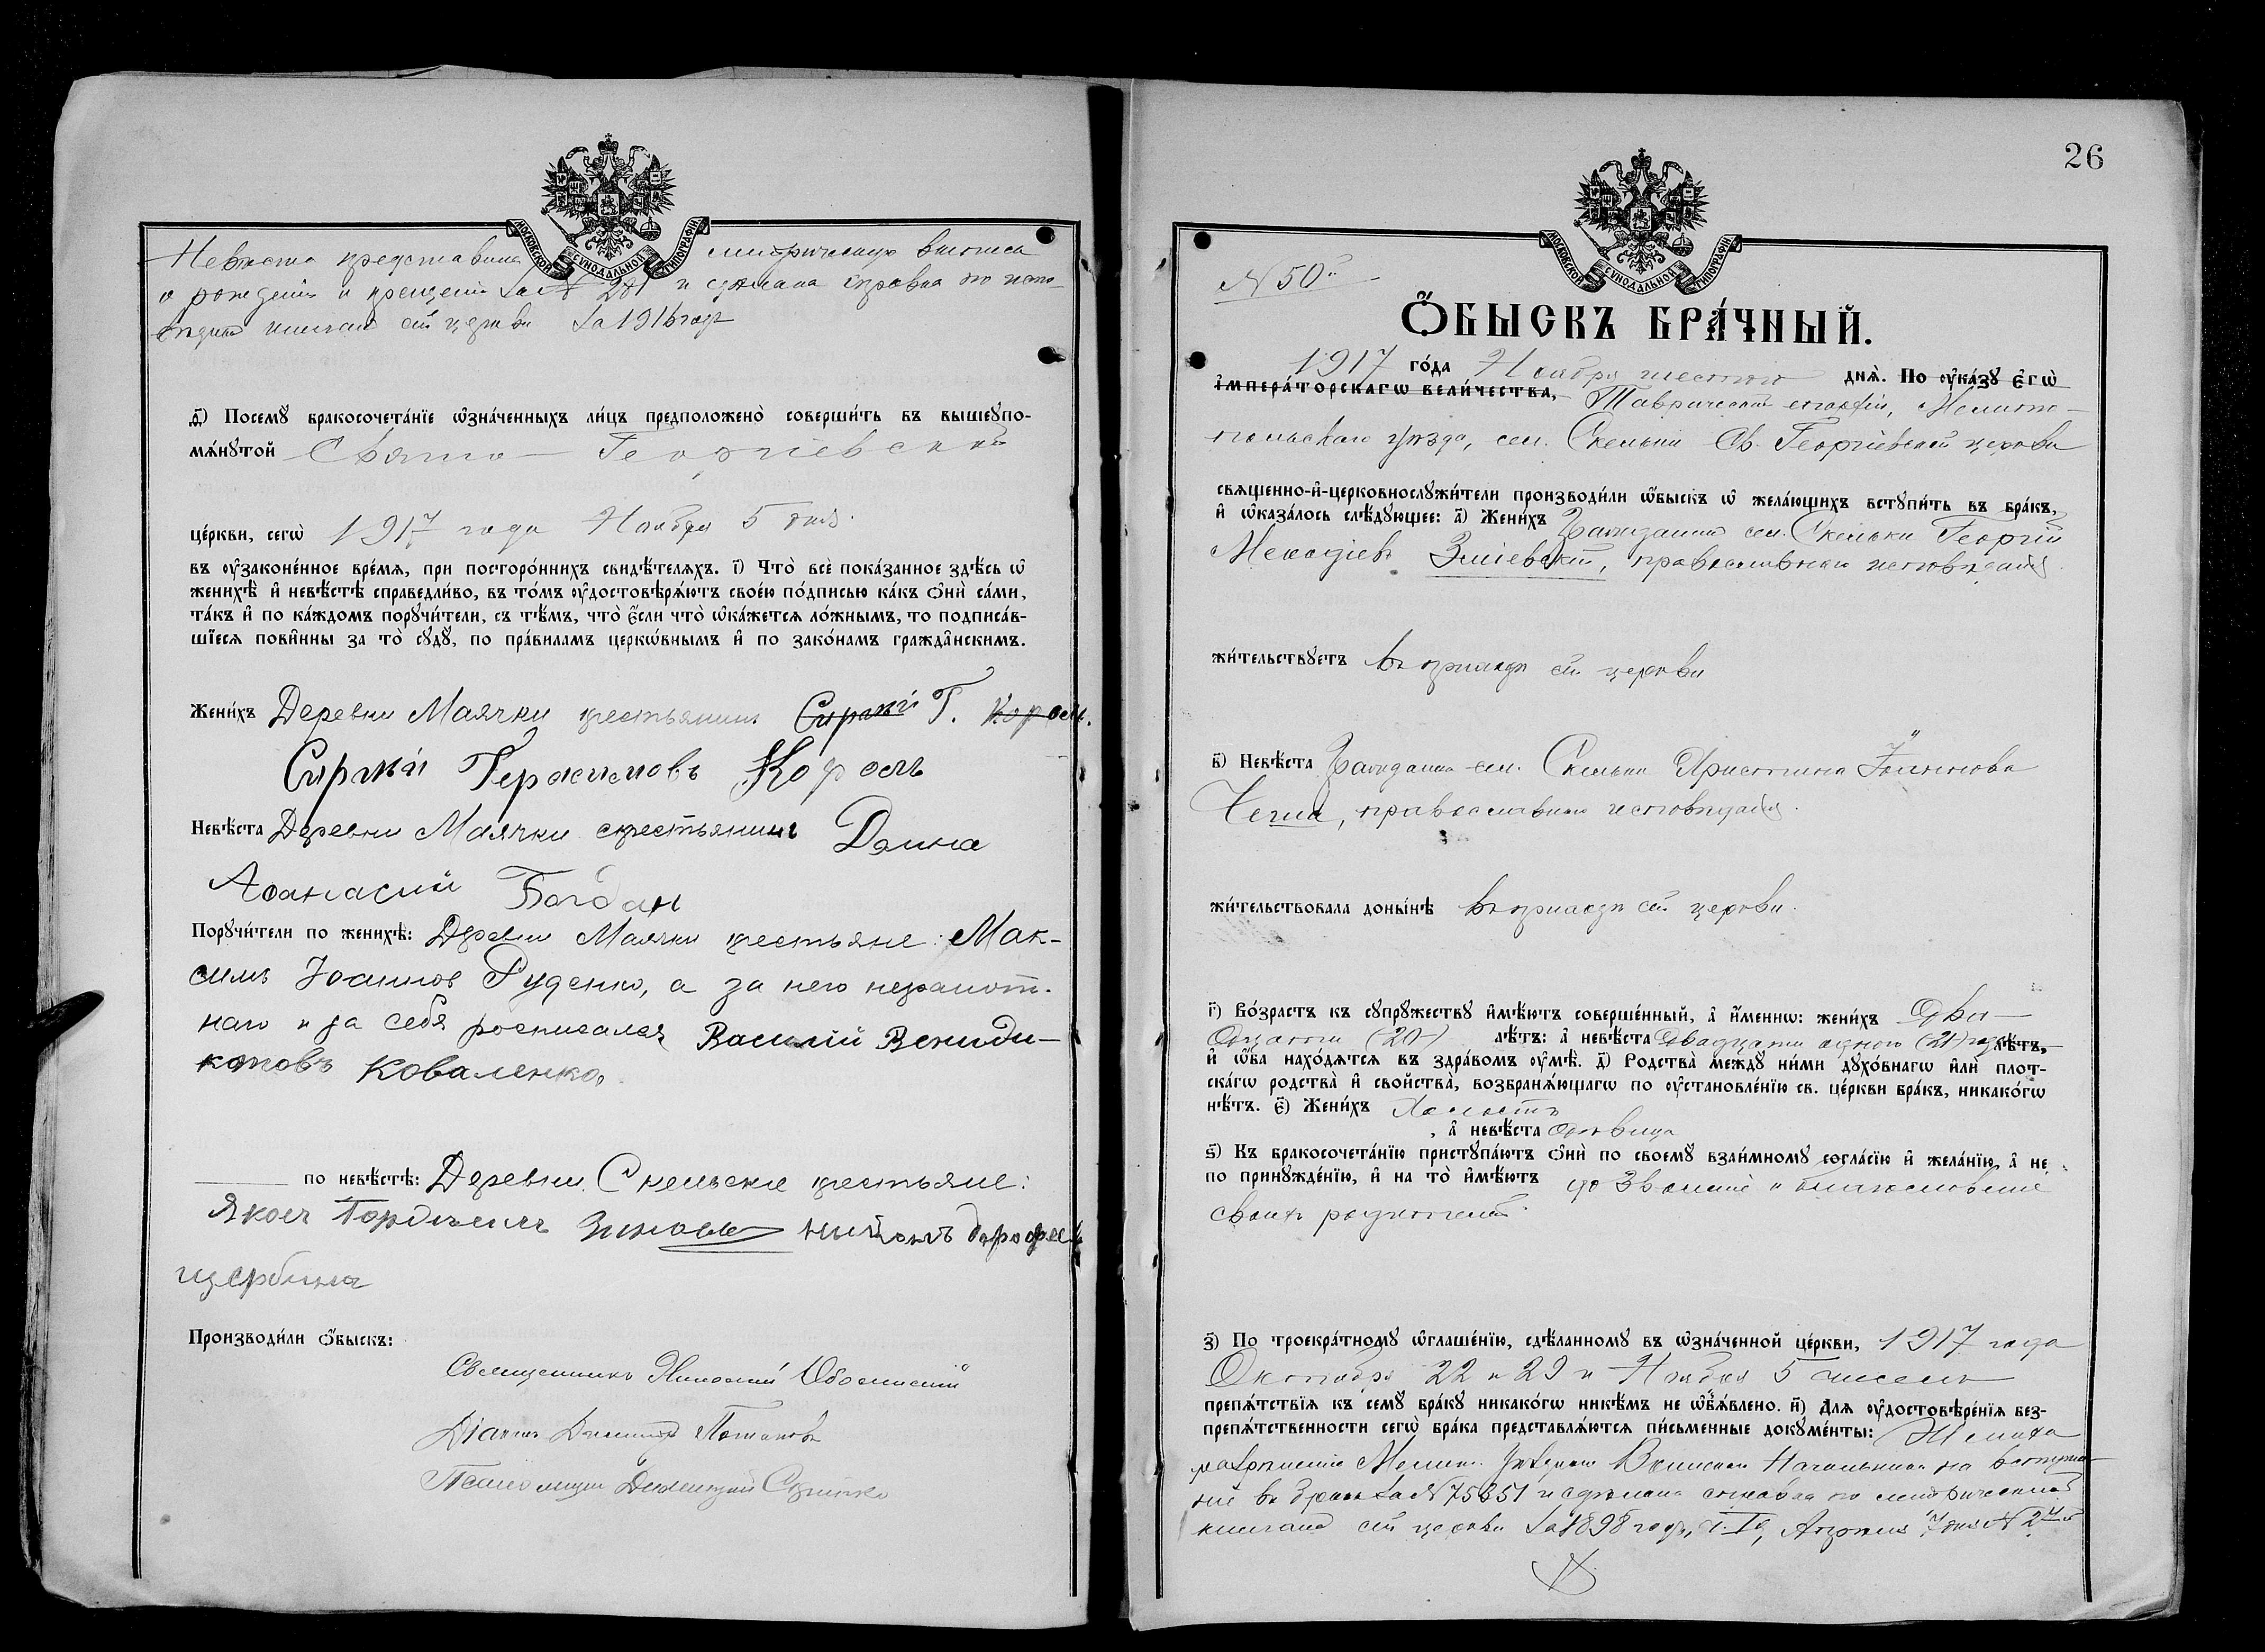 МОСКОВСКОЙ СѴНОДАЛЬНОЙ ТИПОГРАФІИ
Невѣста представила метрическую выпись
о рожденіи и крещеніи за № 201 и сдѣлана справка по испо-
вѣднымъ книгамъ сей церкви за 1916 годъ
д҃) Посемꙋ̀ бракосочета́нїе ѡ҆зна́ченныхъ ли́цъ предположено̀ соверши́ть въ вышеꙋпо-
мѧ́нꙋтой Свято-Георгіевской
це́ркви, сегѡ̀ 1917 года Ноября 5 дня.
въ ᲂу҆законе́нное вре́мѧ, при посторо́ннихъ свидѣ́телѧхъ. і҃) Что̀ всѐ пока́занное здѣ́сь ѡ҆
женихѣ̀ и҆ невѣ́стѣ справедли́во, въ то́мъ ᲂу҆достовѣрѧ́ютъ свое́ю по́дписью ка́къ ѻ҆нѝ са́ми,
та́къ и҆ по ка́ждомъ порꙋчи́тели, съ тѣ́мъ, что̀ є҆́сли что̀ ѡ҆ка́жетсѧ ло́жнымъ, то подписа́в-
шїесѧ пови́нны за то̀ сꙋдꙋ̀, по пра́виламъ церкѡ́внымъ и҆ по зако́намъ гражда́нскимъ.
Жени́хъ Деревни Маячки крестьянинъ Сиргѣй Г. Король.
Сиргѣй Герасимовъ Король
Невѣ́ста Деревни Маячки крестьянин Домна
Афанасий Богдан
Порꙋчи́тели по женихѣ̀: Деревни Маячки крестьяне: Мак-
симъ Іоаннов Руденко, а за него неграмот-
наго и за себя росписался Василій Вениди-
ктовъ Коваленко.
по невѣ́стѣ: Деревни Скельки крестьяне:
Яков Гордѣевъ
щербина
Производи́ли ѻ҆́быскъ:
Священникъ Николай
Діаконъ Димитрій Потаповъ
Псаломщик
26
МОСКОВСКОЙ СѴНОДАЛЬНОЙ ТИПОГРАФІИ
№ 50й
Ѻ҆́БЫСКЪ БРА́ЧНЫЙ.
1917 го́да Ноября шестого днѧ̀. По ᲂу҆ка́зꙋ є҆гѡ̀
і҆мпера́торскагѡ вели́чества, Таврической епархіи, Мелито-
польскаго уѣзда, сел. Скельки Св. Георгіевской церкви
свѧще́нно-и҆-церковнослꙋжи́тели производи́ли ѻ҆́быскъ ѡ҆ жела́ющихъ встꙋпи́ть въ бра́къ,
и҆ ѡ҆каза́лось слѣ́дꙋющее: а҃) Жени́хъ Гражданинъ сел. Скельки Георгій
Меѳодіевъ Зміевскій, православнаго исповѣданія
жи́тельствꙋетъ въ приходѣ сей церкви
в҃) Невѣ́ста Гражданка сел. Скельки Христина Іоаннова
, православнаго исповѣданія.
жи́тельствовала доны́нѣ въ приходѣ сей церкви.
г҃) Во́зрастъ къ сꙋпрꙋ́жествꙋ и҆мѣ́ютъ соверше́нный, а҆ и҆́меннѡ: жени́хъ Два-
дцати (20) лѣ́тъ: а҆ невѣ́ста Двадцати одного (21) года лѣ́тъ,
и҆ ѻ҆́ба нахо́дѧтсѧ въ здра́вомъ ᲂу҆мѣ̀. д҃) Родства̀ междꙋ̀ ни́ми дꙋхо́внагѡ и҆лѝ плот-
ска́гѡ родства̀ и҆ сво́йства̀, возбранѧ́ющагѡ по ᲂу҆становле́нїю св. це́ркви бра́къ, никако́гѡ
нѣ́тъ. є҃) Жени́хъ Холостъ
, а҆ невѣ́ста дѣвица
ѕ҃) Къ бракосочета́нїю пристꙋпа́ютъ ѻ҆нѝ по своемꙋ̀ взаи́мномꙋ согла́сїю и҆ жела́нїю, а҆ не
по принꙋжде́нїю, и҆ на то̀ и҆мѣ́ютъ дозволеніе и благословеніе
своихъ родителей.
з҃) По троекра́тномꙋ ѡ҆глаше́нїю, сдѣ́ланномꙋ въ ѡ҆зна́ченной це́ркви, 1917 года
Октября 22 и 29 и Ноября 5 чиселъ
препѧ́тствїѧ къ семꙋ̀ бра́кꙋ никако́гѡ никѣ́мъ не ѡ҆б̾ѧ́влено. и҃) Длѧ ᲂу҆достовѣре́нїѧ без-
препѧ́тственности сегѡ̀ бра́ка представлѧ́ютсѧ пи́сьменные докꙋме́нты: Жениха
разрѣшеніе Мелит. Уѣзднаго Воинскаго Начальника на вступле-
ніе въ бракъ за № 75351 и сдѣлана справка по метрическимъ
книгамъ сей церкви за 1898 годъ, ч. Iя, Апрѣля 7 дня №